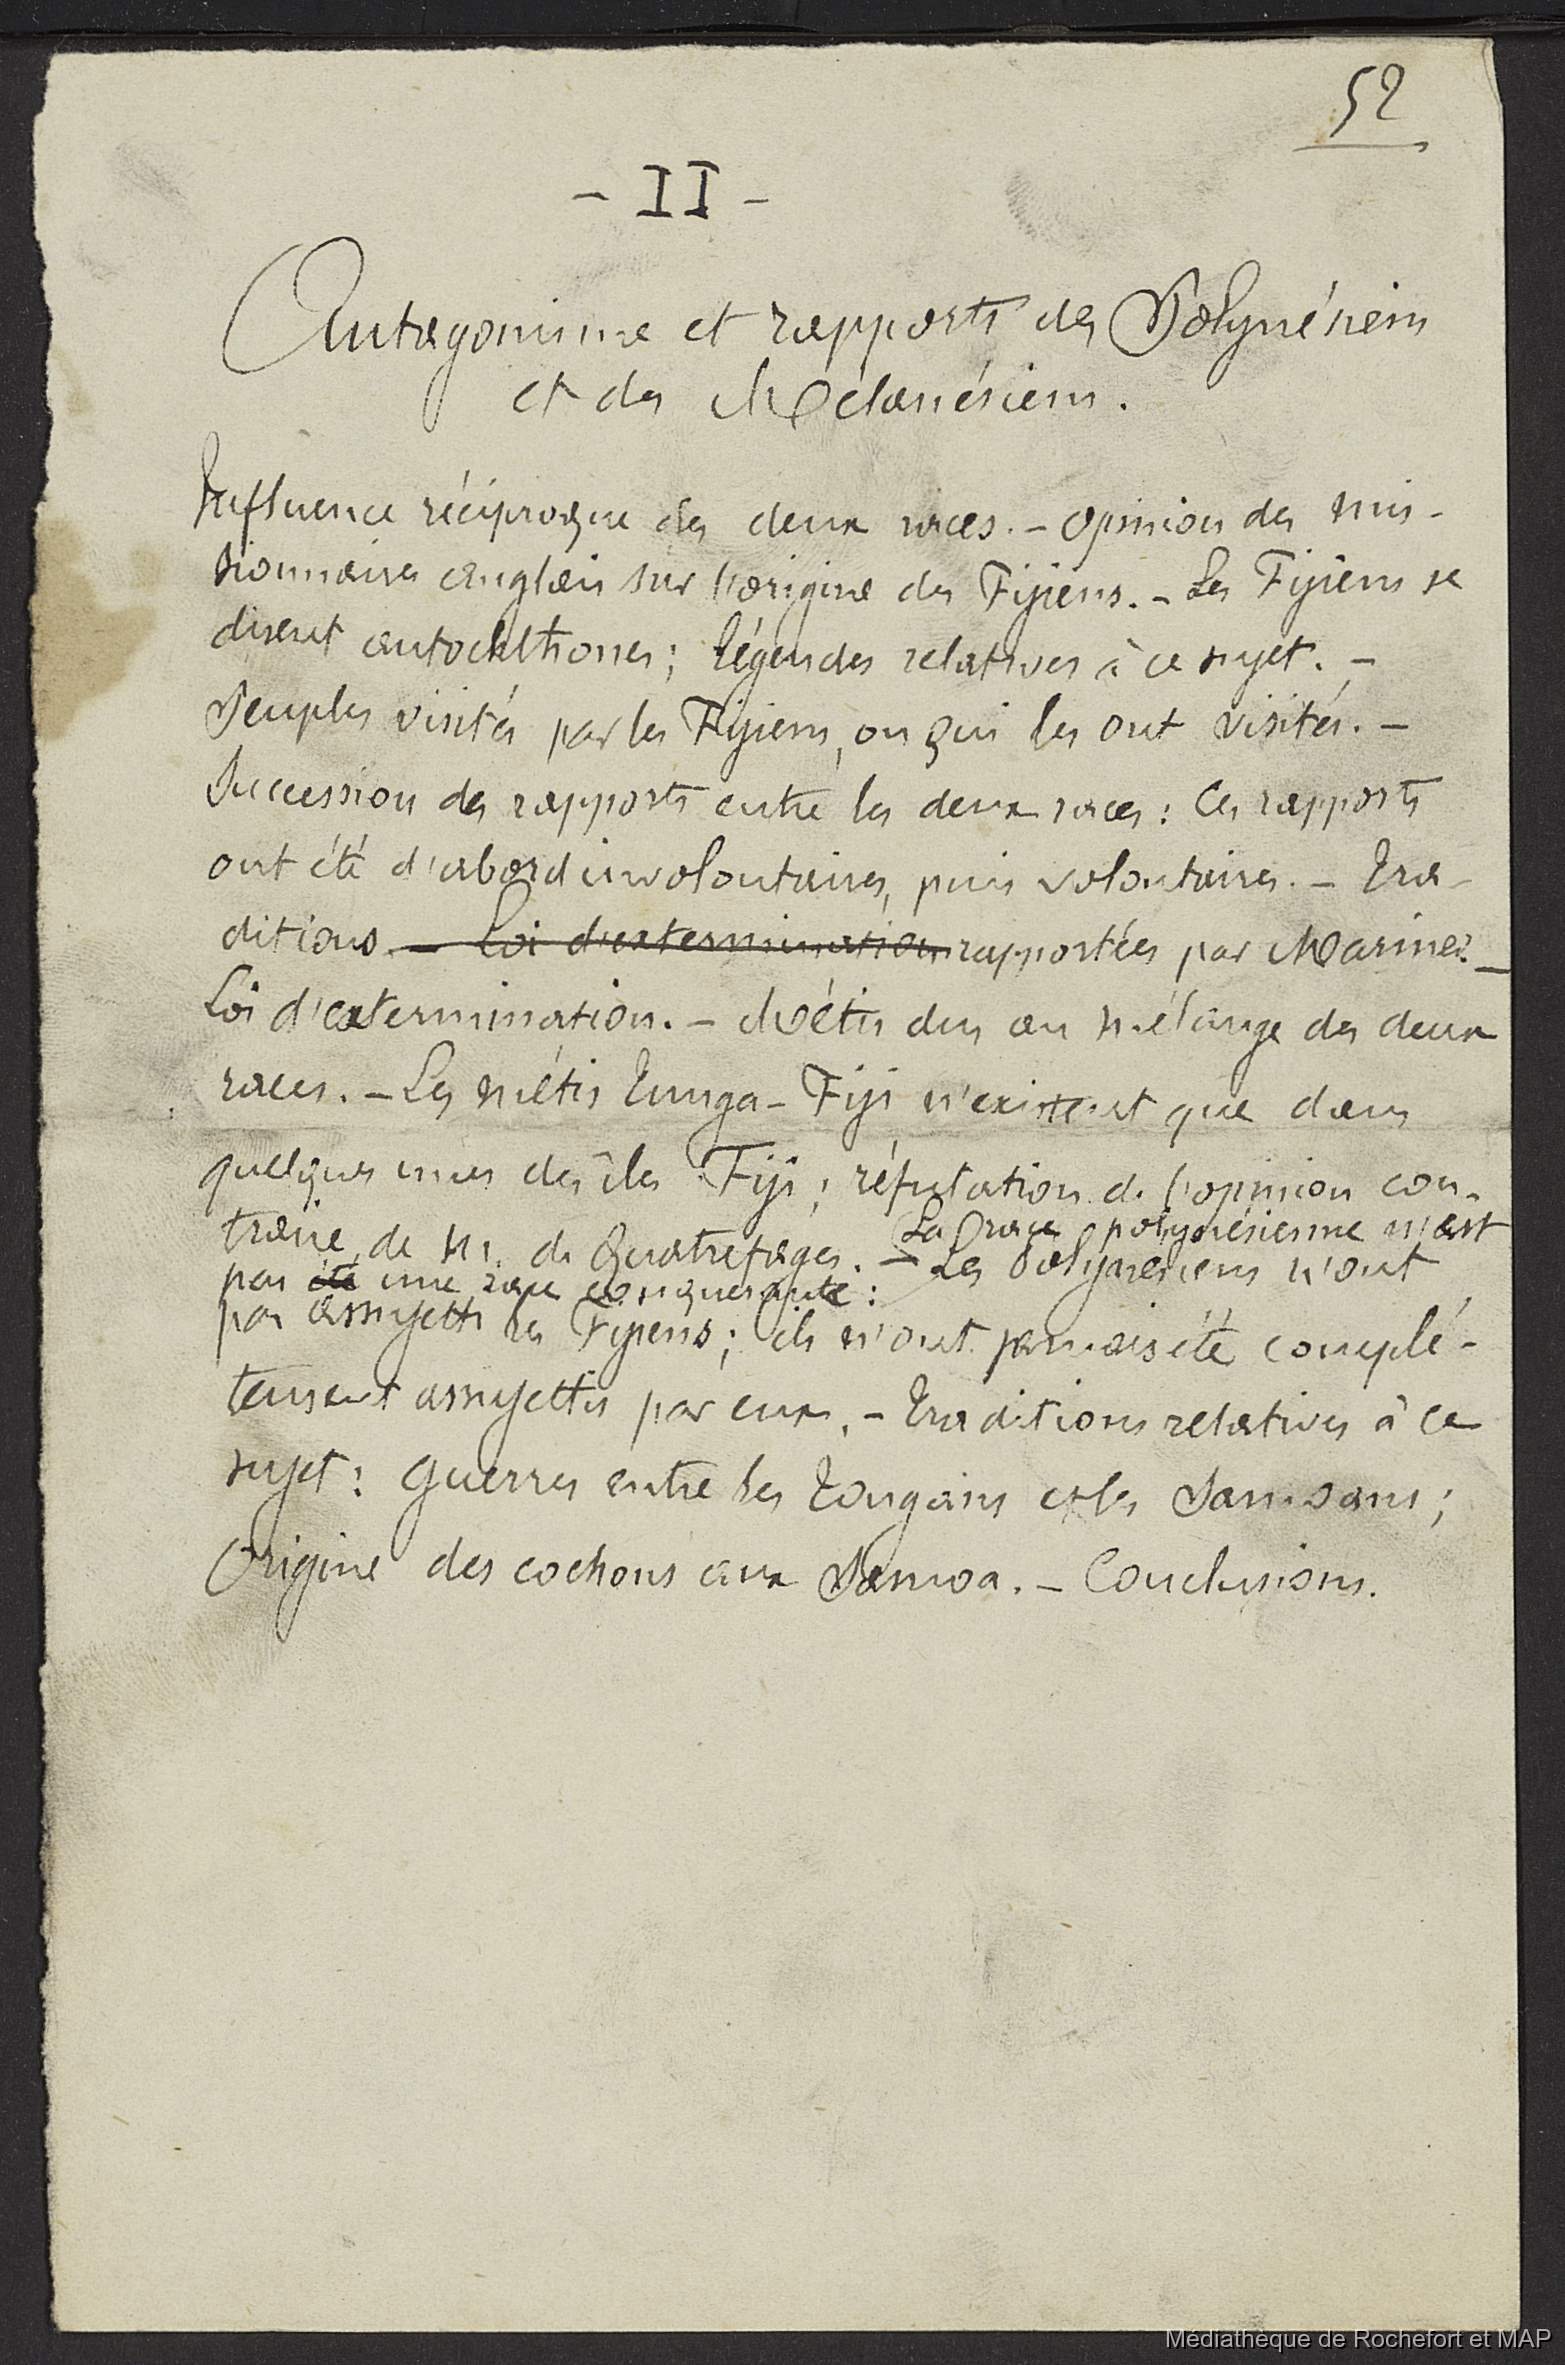 52
- II -
Antagonisme et rapports des Polynésiens
et des Mélanésiens.
Influence réciproque des deux races. - Opinion des mis-
sionnaires anglais sur l'origine des Fijiens. - Les Fijiens se
disent autochthones ; légendes relatives à ce sujet. -
Peuples visités par les Fijiens, ou qui les ont visités. -
Succession des rapports entre les deux races : Ces rapports
ont été d'abord involontaires, puis volontaires. - Tra-
ditions. - Loi d'extermination rapportées par Mariner. -
Loi d'extermination. - Métis dus au mélange des deux
races. - Les métis Tunga-Fiji n'existent que dans
quelques unes des îles Fiji ; réfutation de l'opinion con-
traire, de M. de Quatrefages. - Les Polynésiens n'ont
La race polynésienne n'est
pas été une race conquérante :
pas assujetti les Fijiens ; ils n'ont jamais été complé-
tement assujettis par eux. - Traditions relatives à ce
sujet : guerres entre les Tongans et les Samoans ;
Origine des cochons aux Samoa. - Conclusions.
Médiathèque de Rochefort et MAP